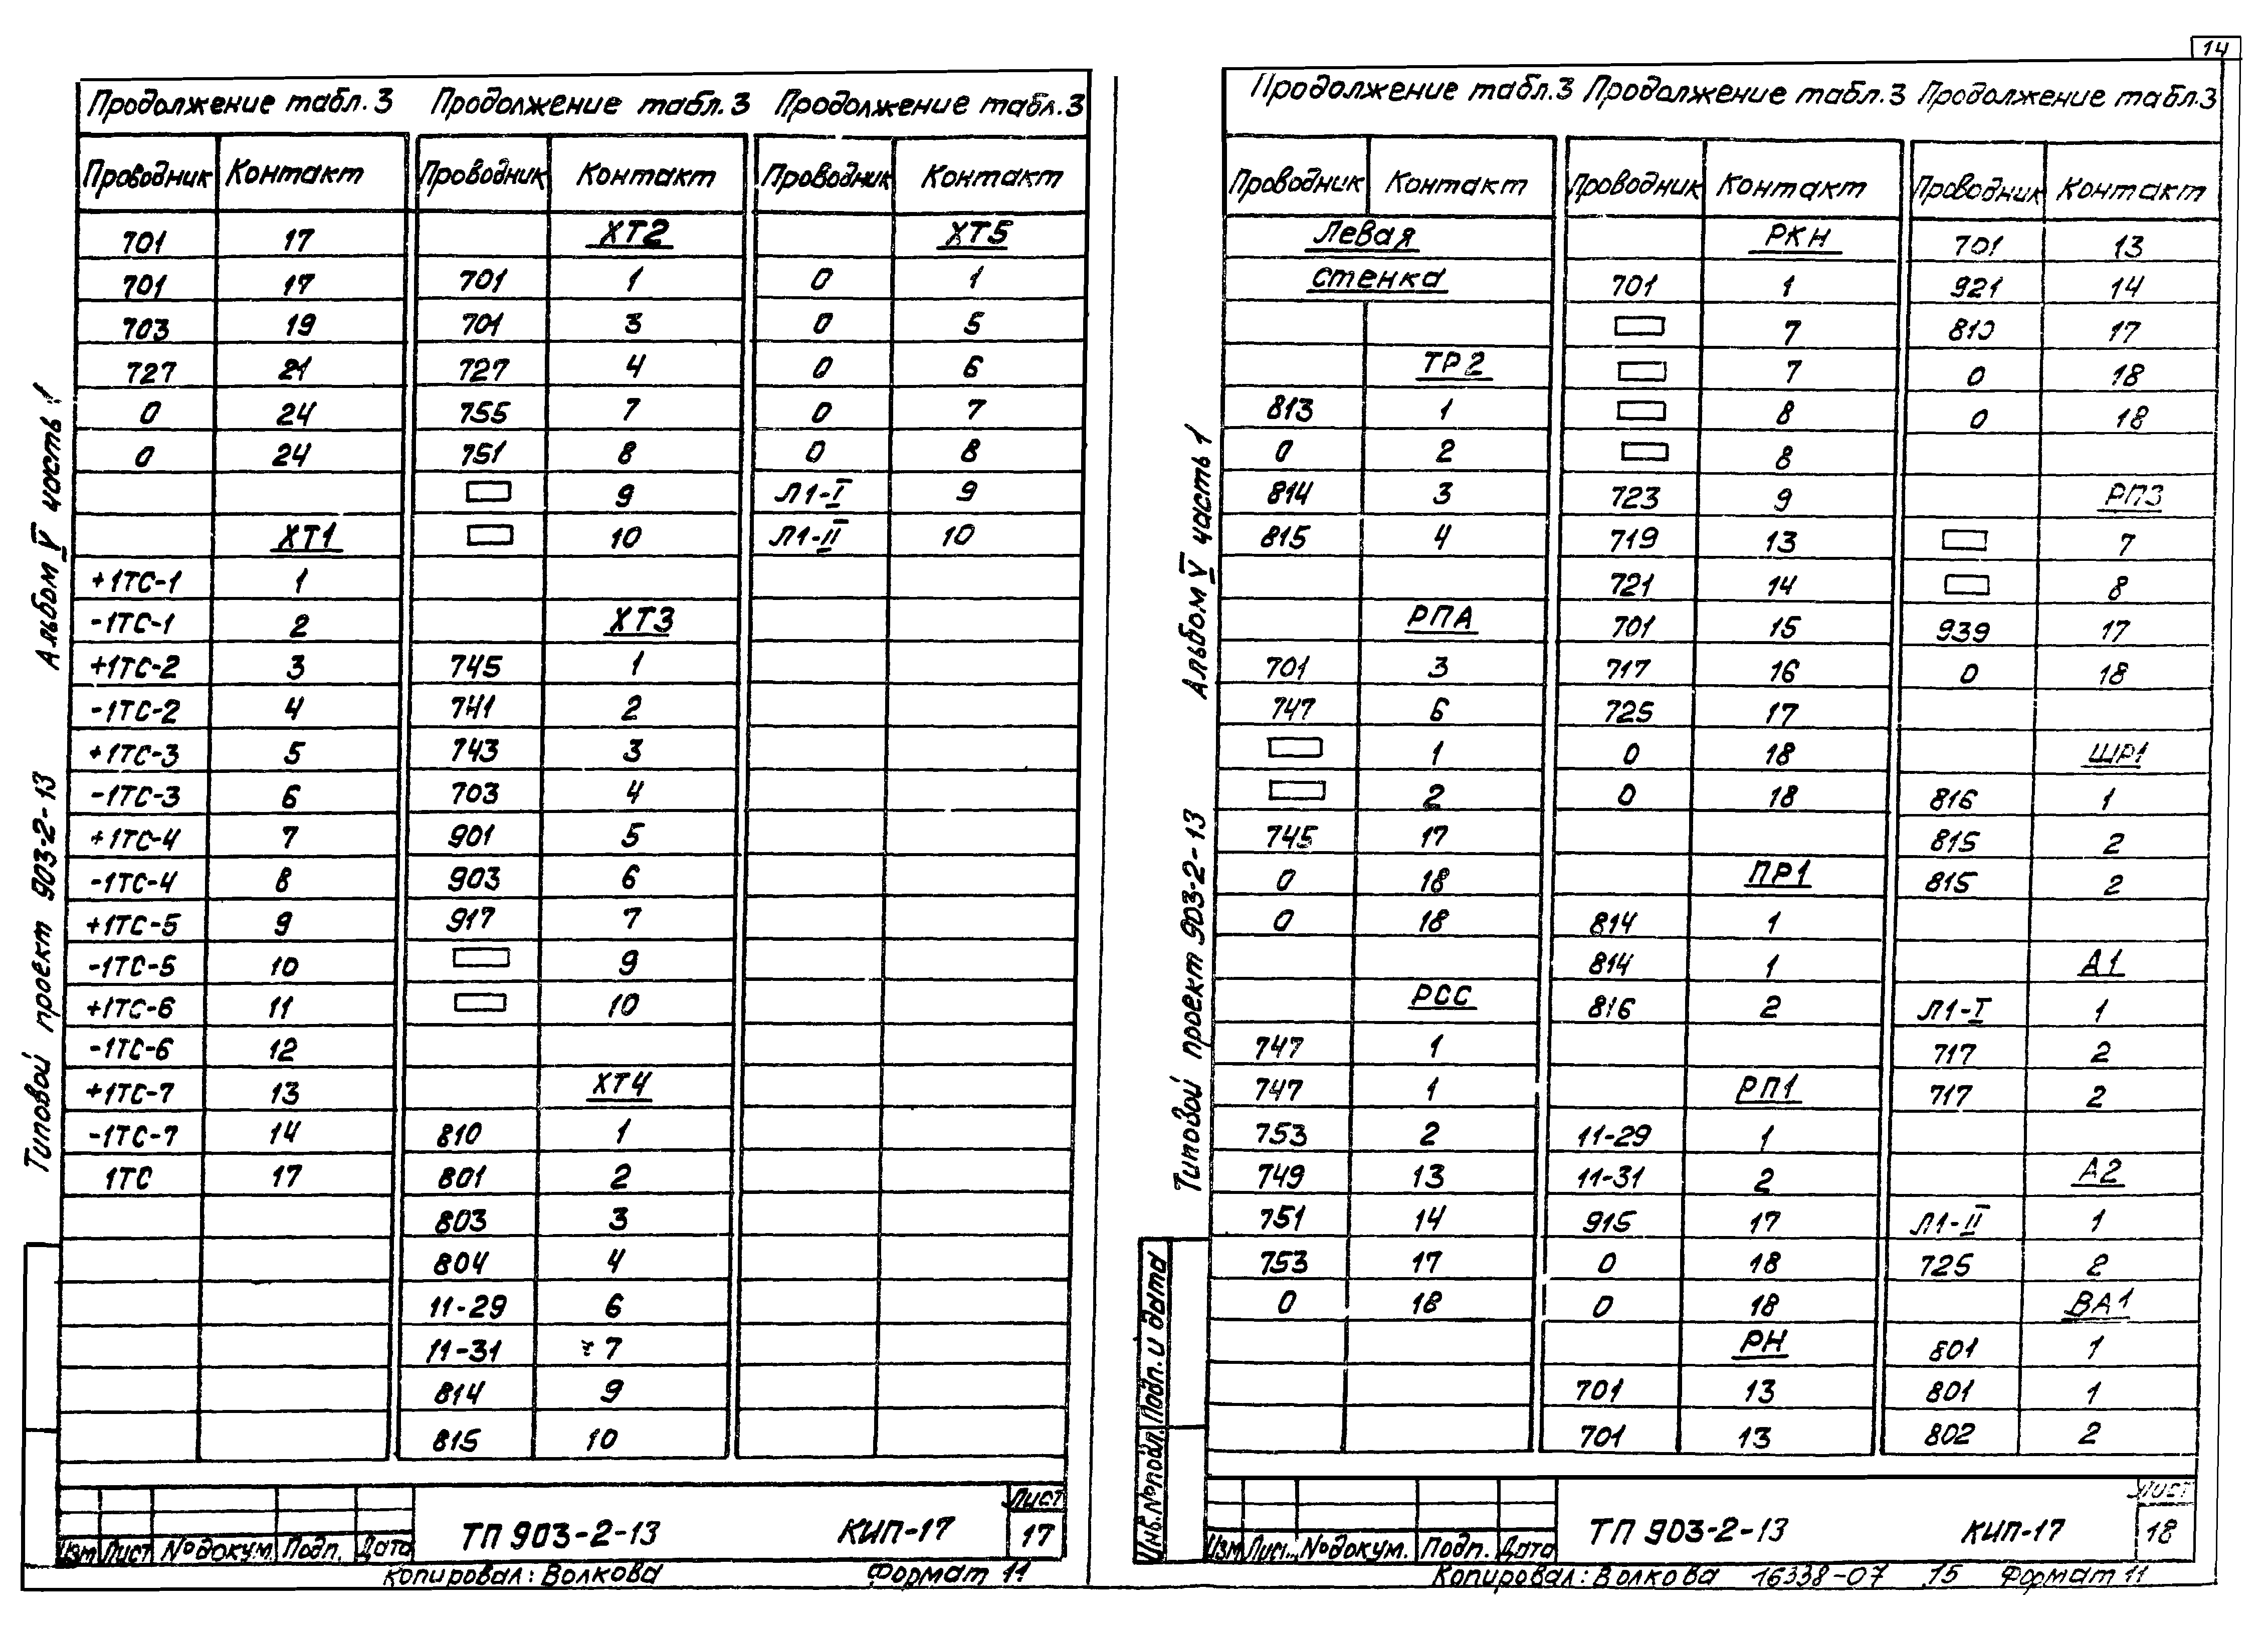 14
Продолжение табл.3
Проводник Контакт
701 17
701 17
703 19
727 21
0 24
0 24
ХТ1
+1ТС-1 1
-1ТС-1 2
+1ТС-2 3
-1ТС-2 4
+1ТС-3 5
-1ТС-3 6
+1ТС-4 7
-1ТС-4 8
+1ТС-5 9
-1ТС-5 10
+1ТС-6 11
-1ТС-6 12
+1ТС-7 13
-1ТС-7 14
1ТС 17
Продолжение табл.3
Проводник Контакт
ХТ2
701 1
701 3
727 4
755 7
751 8
9
10
ХТ3
745 1
741 2
743 3
703 4
901 5
903 6
917 7
9
10
ХТ4
810 1
801 2
803 3
804 4
11-29 6
11-31 7
814 9
815 10
Продолжение табл.3
Проводник Контакт
ХТ5
0 1
0 5
0 6
0 7
0 8
Л1-I 9
Л1-II 10
Типовой проект 903-2-13 Альбом V часть 1
Изм Лист №докум. Подп. Дата
ТП 903-2-13 КИП-17
Лист
17
Копировал: Волкова Формат 11
Продолжение табл.3
Проводник Контакт
Левая
стенка
ТР2
813 1
0 2
814 3
815 4
РПА
701 3
747 6
1
2
745 17
0 18
0 18
РСС
747 1
747 1
753 2
749 13
751 14
753 17
0 18
Продолжение табл.3
Проводник Контакт
РКН
701 1
7
7
8
8
723 9
719 13
721 14
701 15
717 16
725 17
0 18
0 18
ПР1
814 1
814 1
816 2
РП1
11-29 1
11-31 2
915 17
0 18
0 18
РН
701 13
701 13
Продолжение табл.3
Проводник Контакт
701 13
921 14
810 17
0 18
0 18
РП3
7
8
939 17
0 18
ШР1
816 1
815 2
815 2
А1
Л1-I 1
717 2
717 2
А2
Л1-II 1
725 2
ВА1
801 1
801 1
802 2
Типовой проект 903-2-13 Альбом V часть 1
Инв.№подл. Подп. и дата
Изм Лист №докум. Подп. Дата
ТП 903-2-13 КИП-17
Лист
18
Копировал: Волкова 16338-07 15 Формат 11